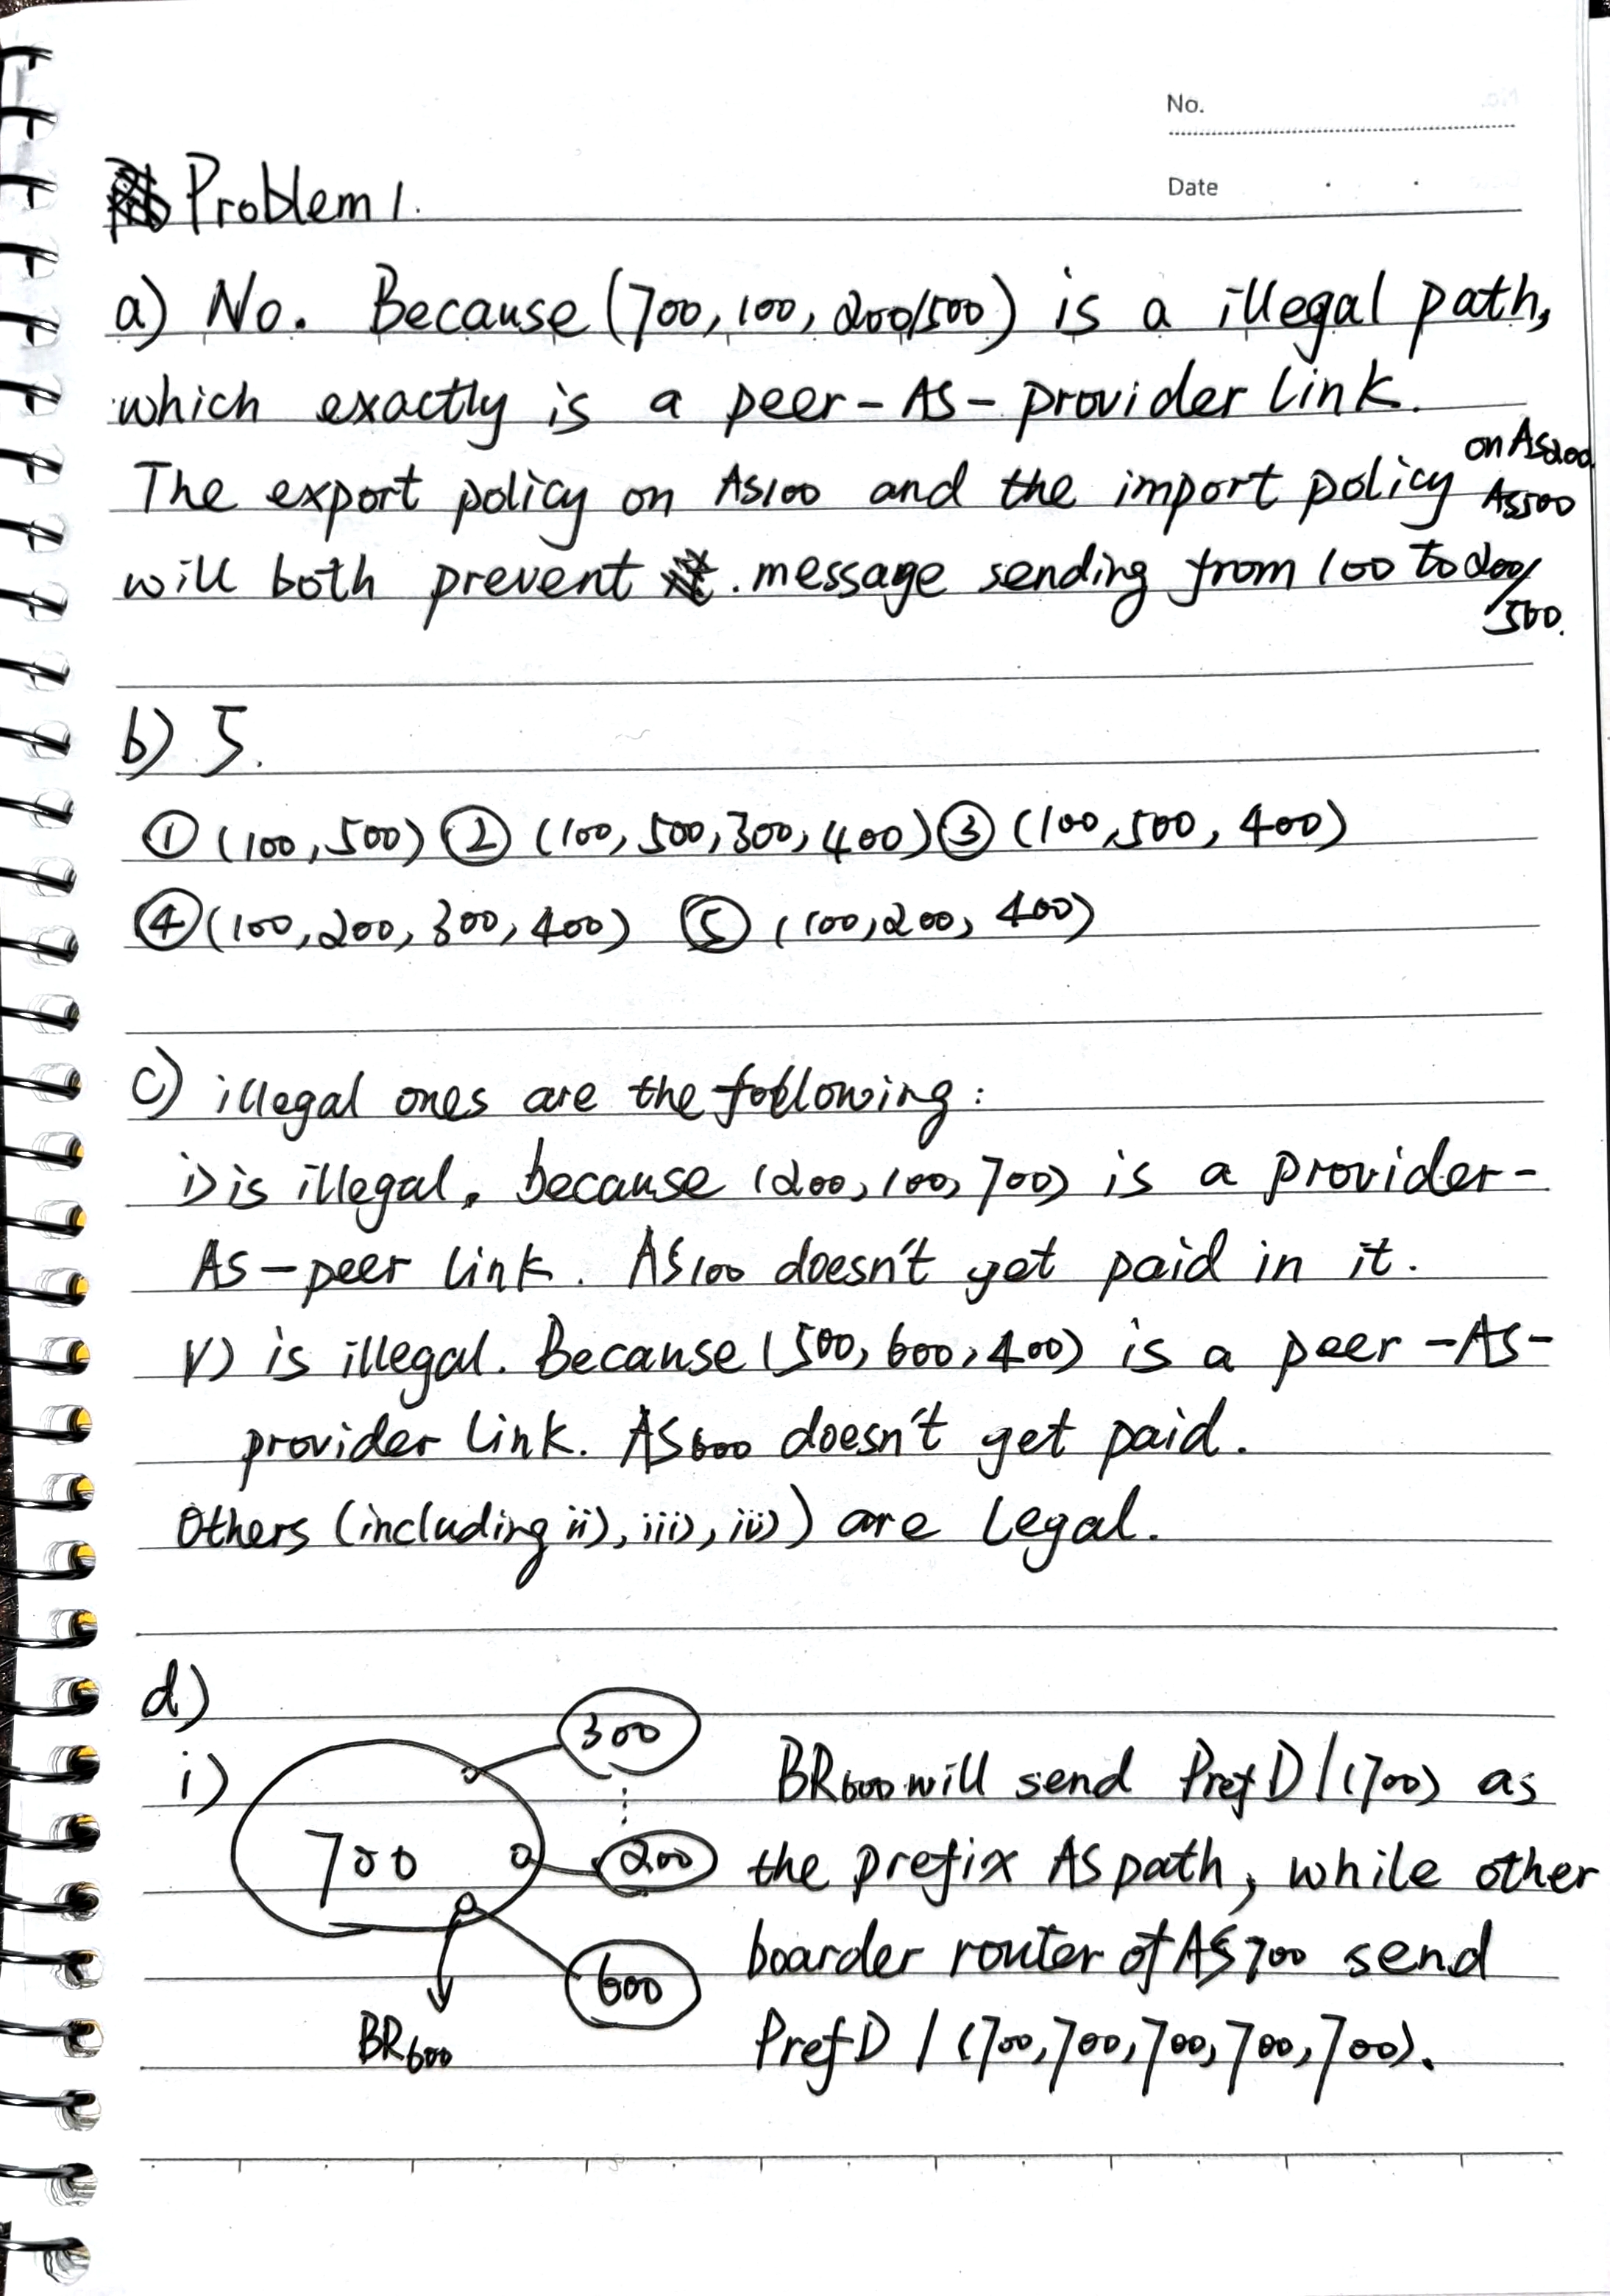 No.
Date
Problem 1.
a) No. Because (700, 100, 200/500) is a illegal path,
which exactly is a peer-AS-provider link.
The export policy on AS100 and the import policy on AS200 AS500
will both prevent message sending from 100 to 200/500.
b) 5.
① (100, 500) ② (100, 500, 300, 400) ③ (100, 500, 400)
④ (100, 200, 300, 400) ⑤ (100, 200, 400)
c) illegal ones are the following:
i) is illegal. because (200, 100, 700) is a provider-
AS-peer link. AS100 doesn't get paid in it.
V) is illegal. Because (500, 600, 400) is a peer-AS-
provider link. AS600 doesn't get paid.
Others (including ii), iii), iv)) are legal.
d)
i)
300
700
200
600
BR600
BR600 will send PrefD/(700) as
the prefix AS path, while other
boarder router of AS700 send
PrefD / (700, 700, 700, 700, 700).